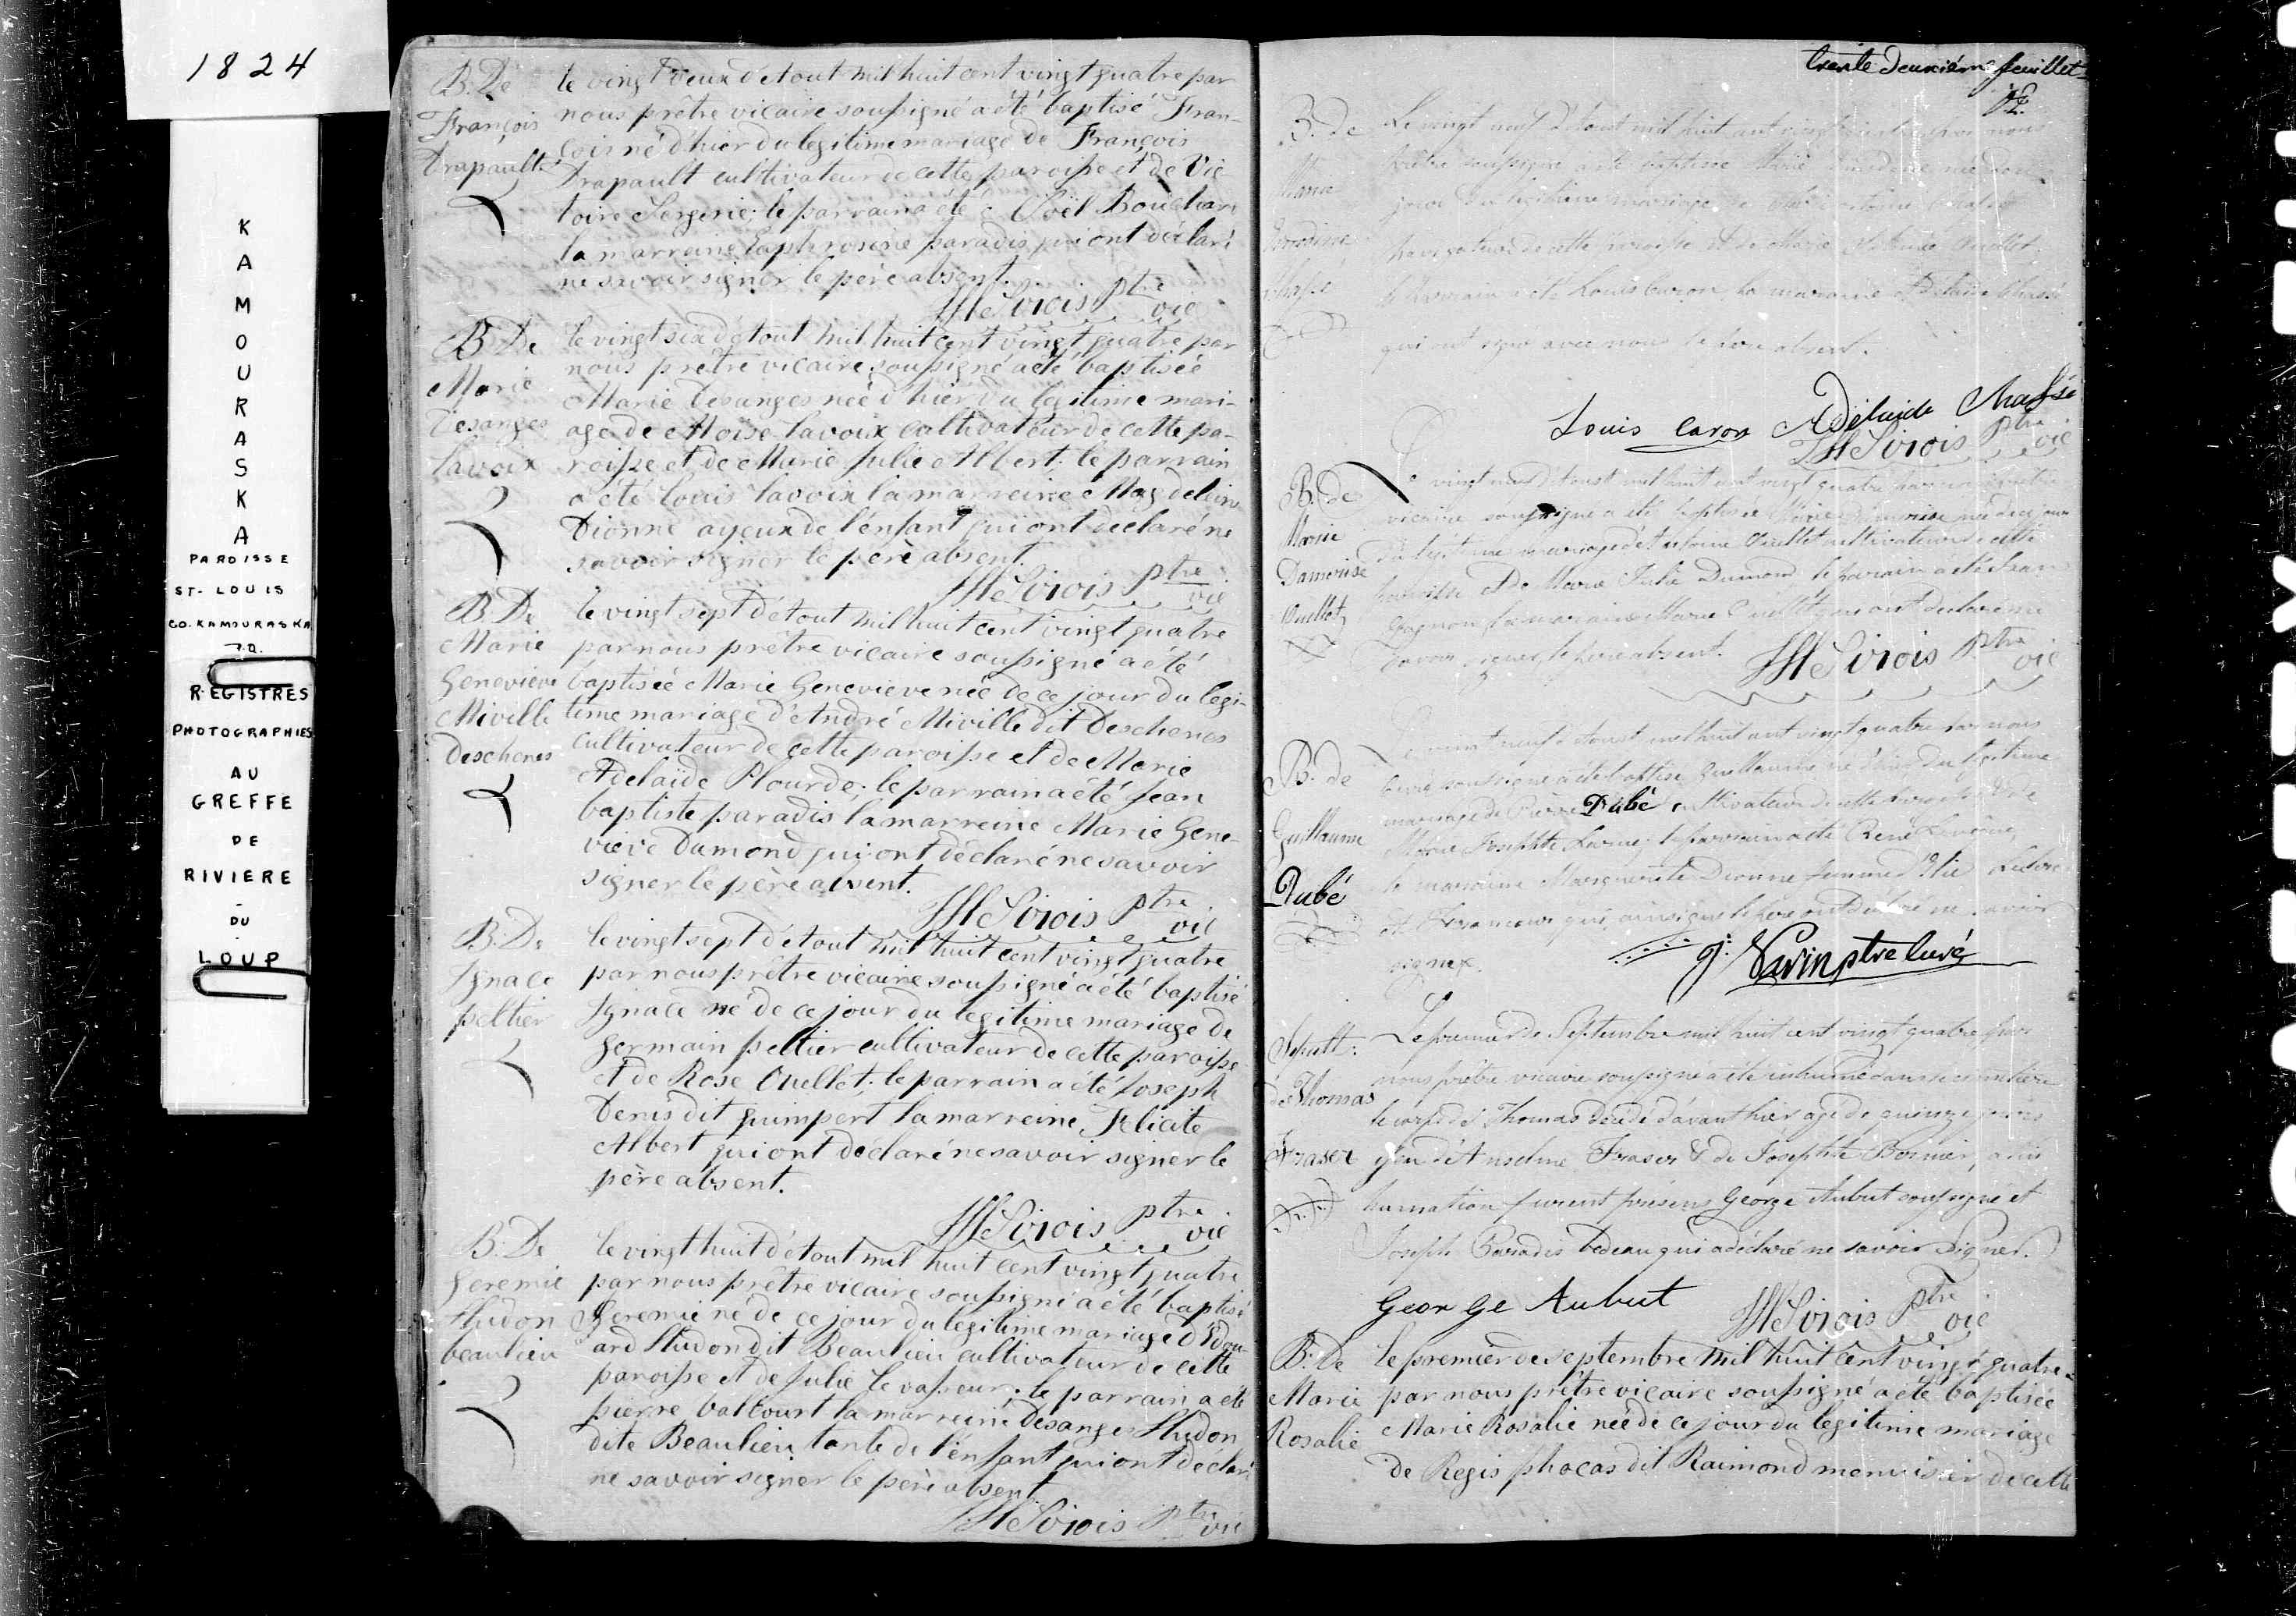 1824
K
A
M
O
U
R
A
S
K
A
PAROISSE
ST-LOUIS
CO. KAMOURASKA
P.Q.
REGISTRES
PHOTOGRAPHIES
AU
GREFFE
DE
RIVIERE
-
DU
-
LOUP
B. De
François
Drapault
le vingt deux d'Aout mil huit cent vingt quatre par
nous prêtre vicaire soussigné a été baptisé Fran-
çois né d'hier du legitime mariage de François
Drapault cultivateur de cette paroisse et de Vic
toire Sergerie; le parrain a été Joël Bouchar
la marreine Euphrosine paradis qui ont déclaré
ne savoir signer le père absent.
Sirois Ptre
vic
B. De
Marie
Desanges
Lavoix
le vingt six d'Aout mil huit cent vingt quatre par
nous prêtre vicaire soussigné a été baptisée
Marie Desanges née d'hier du legitime mari-
age de Moïse Lavoix cultivateur de cette pa-
roisse et de Marie Julie Albert; le parrain
a été Louis Lavoix la marreine Magdeleine
Dionne ayeux de l'enfant qui ont declaré ne
savoir signer le père absent.
Sirois Ptre
vic
B. De
Marie
Genevieve
Miville
Deschenes
le vingt sept d'Aout mil huit cent vingt quatre
par nous prêtre vicaire soussigné a été
baptisée Marie Genevieve née de ce jour du legi-
time mariage d'André Miville dit Deschenes
cultivateur de cette paroisse et de Marie
Adelaïde Plourde; le parrain a été Jean
baptiste paradis la marreine Marie Gene-
vieve Dumond qui ont déclaré ne savoir
signer le père absent.
Sirois Ptre
vic
B. De
Ignace
peltier
le vingt sept d'Aout mil huit cent vingt quatre
par nous prêtre vicaire soussigné a été baptisé
Ignace né de ce jour du legitime mariage de
Germain peltier cultivateur de cette paroisse
et de Rose Ouellet; le parrain a été Joseph
Denis dit quimpert la marreine Felicité
Albert qui ont déclaré ne savoir signer le
père absent.
Sirois Ptre
vic
B. De
Geremie
Hudon
beaulieu
le vingt huit d'Aout mil huit cent vingt quatre
par nous prêtre vicaire soussigné a été baptisé
Geremie né de ce jour du legitime mariage d'Edou-
ard Hudon dit Beaulieu cultivateur de cette
paroisse et de Julie le vasseur; le parrain a été
pierre balcourt la marreine Desanges Hudon
dite Beaulieu tante de l'enfant qui ont declaré
ne savoir signer le père absent
Sirois Ptre
vic
trente deuxième feuillet
B. de
Marie
Chassé
Le vingt neuf d'Aout mil huit cent vingt quatre par nous
prêtre soussigné a été baptisée Marie
jour du legitime mariage de
navigateur de cette paroisse et de Marie Ouellet
le Parrain a été Louis Caron la marraine Adélaide Chassé
qui ont signé avec nous le père absent.
Louis caron Adélaide Chassé
Sirois Ptre
vic
B. de
Marie
Damerise
Ouellet
Le vingt neuf d'Aout mil huit cent vingt quatre par nous prêtre
vicaire soussigné a été baptisée Marie Damerise née de ce jour
du légitime mariage d' Ouellet cultivateur de cette
paroisse & de Marie Julie Dumond, le parain a été
Gagnon la maraine Marie Ouellet qui ont declaré ne
savoir signer le père absent.
Sirois Ptre
vic
B. de
Guillaume
Dubé
Le vingt neuf d'Aoust mil huit cent vingt quatre par nous
Curé soussigné a été baptisé Guillaume né d'hier du légitime
mariage de Pierre Dubé cultivateur de cette paroisse & de
Marie Josephte ; le parrain a été René
la maraine Marguerite Dionne femme d'Elie
qui ainsi que le père ont déclaré ne savoir
signer.
J: Varin ptre curé
Sepult:
de Thomas
Fraser
Le premier de Septembre mil huit cent vingt quatre par
nous prêtre vicaire soussigné a été inhumé dans le cimetière
le corps de Thomas decedé d'avant hier agé de quinze jours
issu d'Anselme Fraser & de Josephte Bernier, a l'in
humation furent présens George Aubut soussigné et
Joseph Paradis bedeau qui a déclaré ne savoir signer.
George Aubut
Sirois Ptre
vic
B. De
Marie
Rosalie
le premier de septembre mil huit cent vingt quatre
par nous prêtre vicaire soussigné a été baptisée
Marie Rosalie née de ce jour du legitime mariage
de Regis phocas dit Raimond menuisier de cette